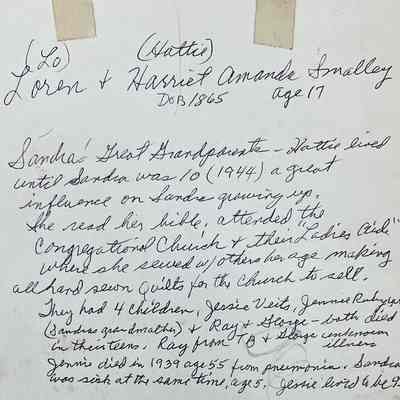 (Lo) (Hattie)
Loren & Harriet Amanda Smalley
DOB 1865 age 17
Sandra's Great Grandparents - Hattie lived
until Sandra was 10 (1944) a great
influence on Sandra growing up.
She read her bible, attended the
Congregational Church & their "Ladies Aide"
where she sewed w/ others her age making
all hand sewn quilts for the church to sell.
They had 4 children, Jessie Veits, Jennie
(Sandras grandmother) & Ray & George - both died
in their teens. Ray from TB & George unknown
illness
Jennie died in 1939 age 55 from pneumonia. Sandra
was sick at the same time, age 5. Jessie lived to be